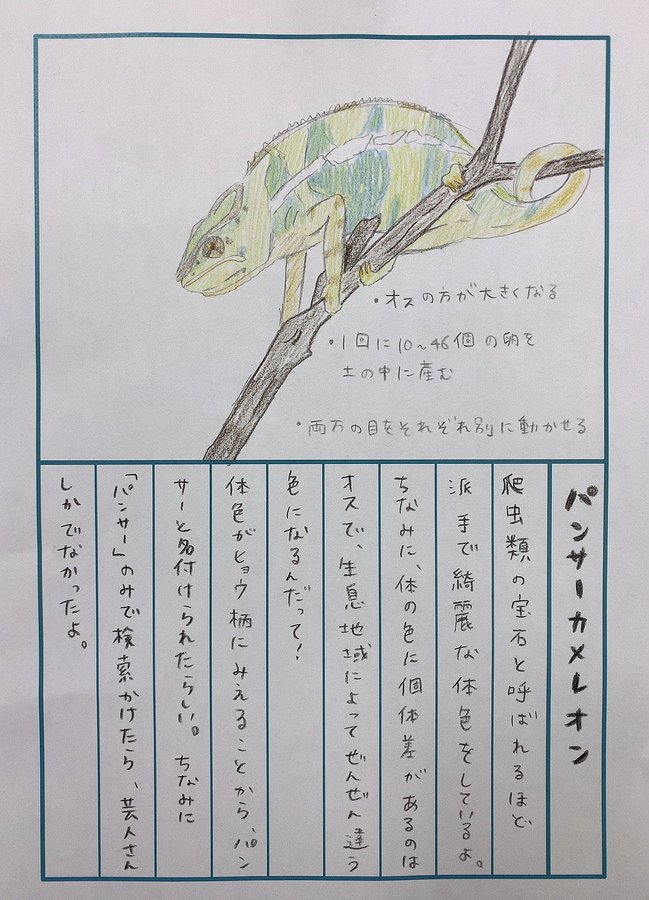 ・オスの方が大きくなる
・1回に10〜46個の卵を
土の中に産む
・両方の目をそれぞれ別に動かせる
パンサーカメレオン
爬虫類の宝石と呼ばれるほど
派手で綺麗な体色をしているよ。
ちなみに、体の色に個体差があるのは
オスで、生息地域によってぜんぜん違う
色になるんだって!
体色がヒョウ柄にみえることから、パン
サーと名付けられたらしい。 ちなみに
「パンサー」のみで検索かけたら、芸人さん
しかでなかったよ。